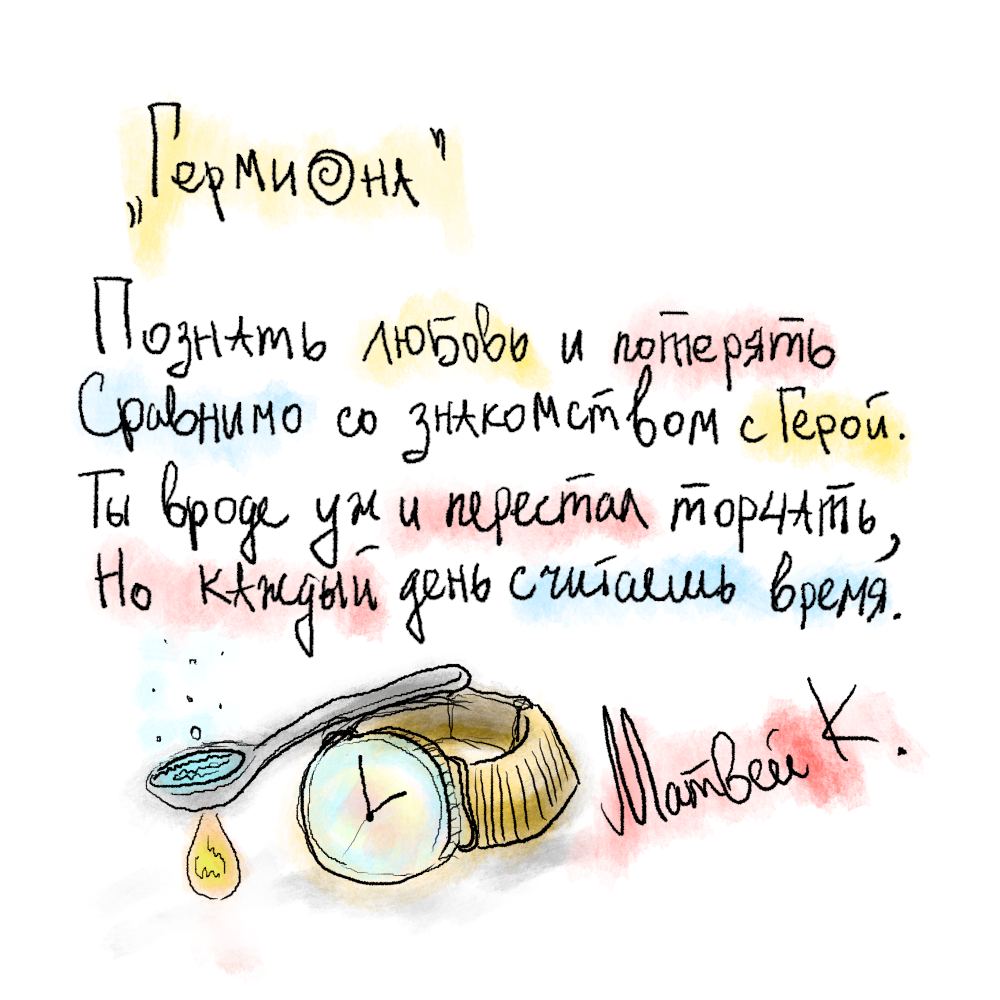 „Гермиона"
Познать любовь и потерять
Сравнимо со знакомством с Герой.
Ты вроде уж и перестал торчать,
Но каждый день считаешь время.
Матвей К.